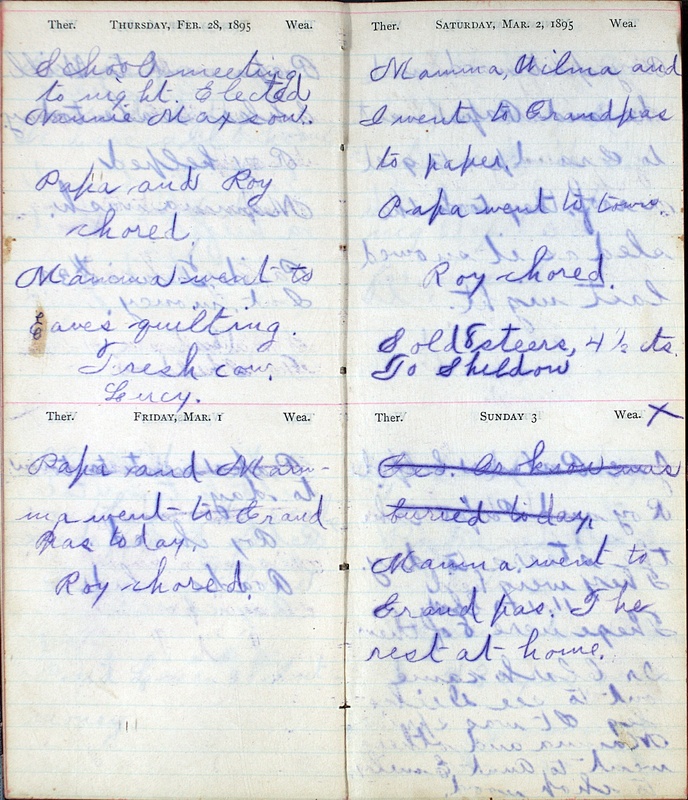 Ther. THURSDAY, FEB. 28, 1895 Wea.
School meeting
to night. Elected
Nannie Maxson.
Papa and Roy
chored.
Mamma went to
Eaves quilting.
Fresh cow.
Lucy.
Ther. FRIDAY, MAR. 1 Wea.
Papa and Mam-
ma went to Grand
Pas today.
Roy chored.
Ther. SATURDAY, MAR. 2, 1895 Wea.
Mamma, Wilma and
I went to Grandpas
to paper,
Papa went to town.
Roy chored.
Sold 8 steers, 4 1/2 cts.
To Sheldon
Ther. SUNDAY 3 Wea. X
was
burried today,
Mamma went to
Grand pas. The
rest at home.